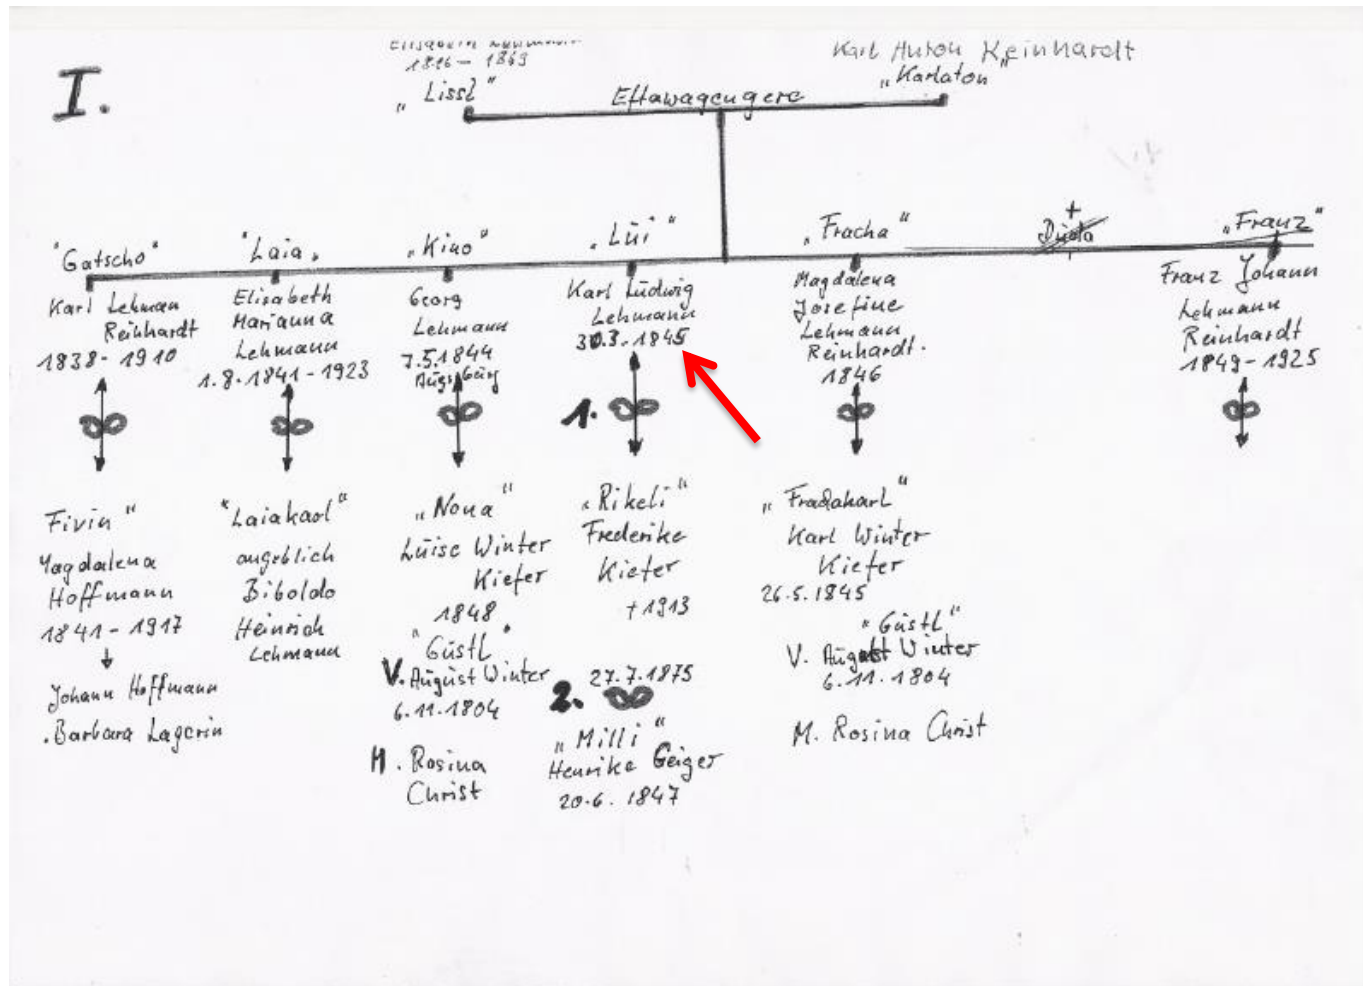 I.
1816 - 1869
„Lissl"
Karl Anton Reinhardt
„Karlaton"
Effawagengere
"Gatscho"
Karl Lehman
Reinhardt
1838 - 1910
"Laia„
Elisabeth
Marianna
Lehmann
1.8.1841 - 1923
„Kino"
Georg
Lehmann
7.5.1844
Augsburg
„Lüi"
Karl Ludwig
Lehmann
30.3.-1845
„Fracha"
Magdalena
Josefine
Lehmann
Reinhardt.
1846
+
„Franz"
Franz Johann
Lehmann
Reinhardt
1849 - 1925
Fivin"
Magdalena
Hoffmann
1841 - 1917
Johann Hoffmann
.Barbara Lagerin
"Laiakarl"
angeblich
Biboldo
Heinrich
Lehmann
„Nona"
Lüise Winter
Kiefer
1848
"Güstl"
V. August Winter
6.11.1804
M. Rosina
Christ
1.
„Rikeli"
Frederike
Kiefer
+1913
27.7.1875
2.
„Milli"
Henrike Geiger
20.6.1847
„Fradakarl"
Karl Winter
Kiefer
26.5.1845
"Güstl"
V. August Winter
6.11.1804
M. Rosina Christ